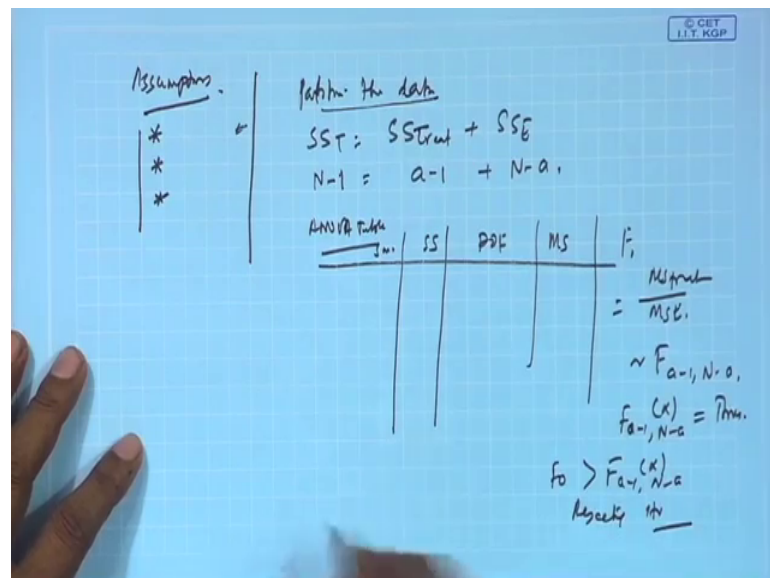 © CET
I.I.T. KGP
Assumptions.
*
*
*
Partition the data
SST = SSTreat + SSE
N-1 = a-1 + N-a.
ANOVA Table
SS
DOF
MS
F
= MStreat
MSE.
~ F a-1, N-a,
F a-1, N-a (α) =
F0 > F a-1, N-a (α)